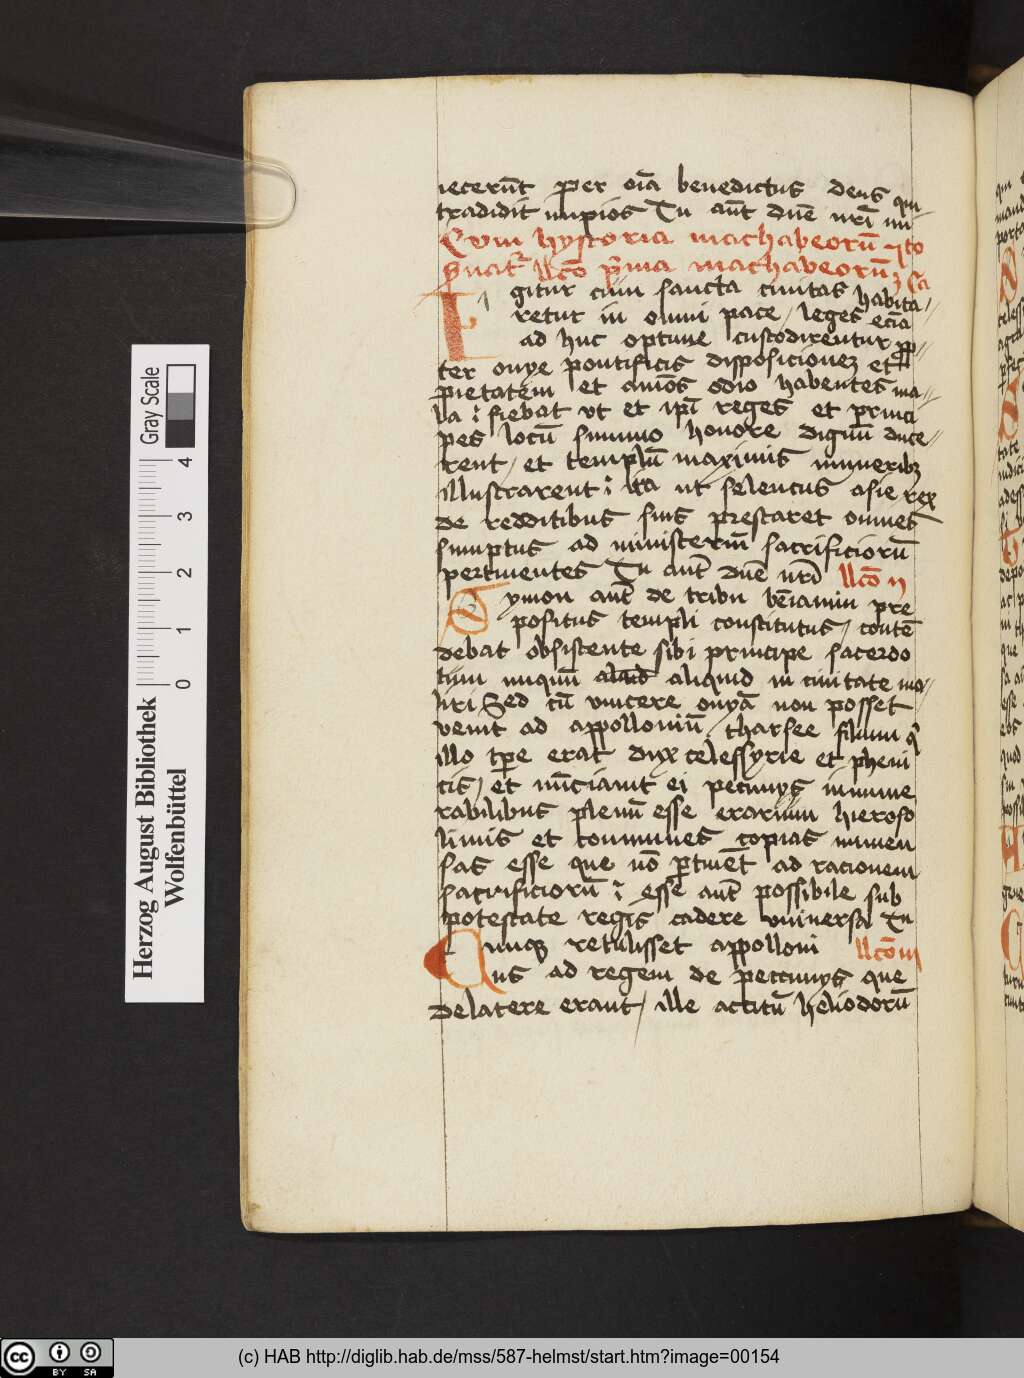 iecerūt per oīa benedictus deus qui
tradidit impios Tu aūt dn̄e nr̄i mi
Cum hystoria machabeorū
llcō pͥma machabeorū
Igitur cum sancta ciuitas habita
retur in omni pace / leges eciā
ad huc optime custodirentur pp
ter onye pontificis disposicionez et
pietatem et aniōs odio habentes ma
la : fiebat vt et ipī reges et princi
pes locū summo honore dignū duce
rent / et templū maximis muneribz
illustrarent : ita ut seleucus asie rex
de redditibus suis prestaret omnes
sumptus ad ministeriū sacrificiorū
pertinentes Tu aūt dn̄e nr̄i llcō ii
Symon aūt de tribu bēiamin pre
positus templi constitutus / contē
debat obsistente sibi principe sacerdo
tum aliquid in ciuitate mo
liri Sed cū vincere onyā non posset
venit ad appolloniū tharsee filium qͥ
illo tp̄e erat dux celessyrie et pheni
cis / et nūciauit ei pecunys innume
rabilibus plenū esse erarium hieroso
limis et communes copias immen
sas esse que nō ꝑtinēt ad racionem
sacrificiorū : esse aūt possibile sub
potestate regis cadere vniuersa Tu
Cumqz retulisset appolloni llcō iii
us ad regem de peccunys que
delatere erant / ille accitū heliodorū
Herzog August Bibliothek
Wolfenbüttel
0 1 2 3 4
Gray Scale
cc BY SA
(c) HAB http://diglib.hab.de/mss/587-helmst/start.htm?image=00154